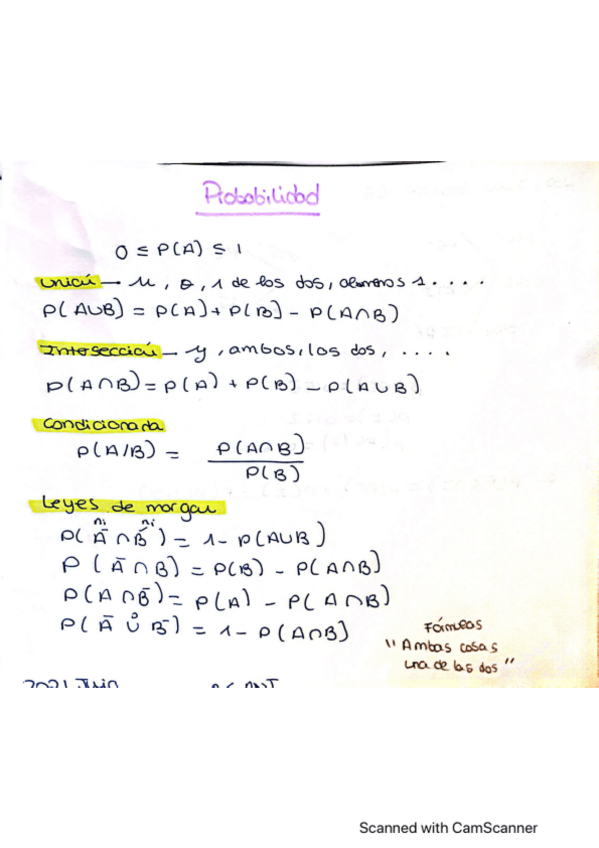 Probabilidad
0 ≤ P(A) ≤ 1
Unión → u, o, 1 de los dos, al menos 1....
P(A∪B) = P(A) + P(B) - P(A∩B)
Intersección → y, ambos, los dos, ....
P(A∩B) = P(A) + P(B) - P(A∪B)
Condicionada
P(A/B) = P(A∩B)
P(B)
Leyes de morgan
ni ni
P(Ā∩B̄) = 1 - P(A∪B)
P(Ā∩B) = P(B) - P(A∩B)
P(A∩B̄) = P(A) - P(A∩B)
o
P(Ā∪B̄) = 1 - P(A∩B)
Fórmulas
"Ambas cosas
una de las dos"
2021 Junio
Scanned with CamScanner